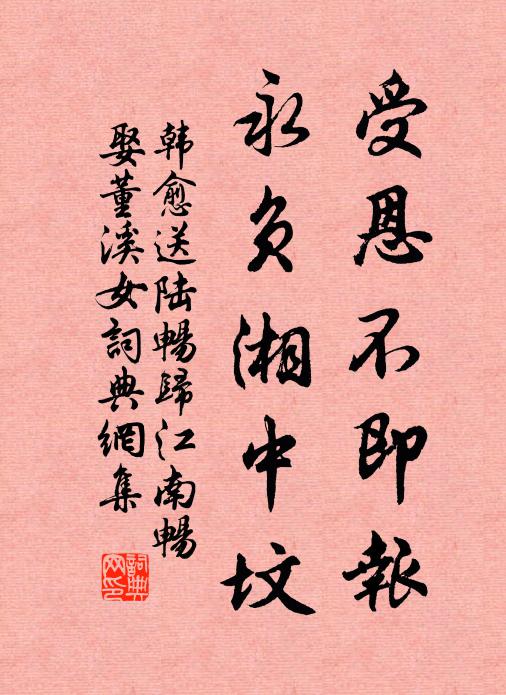 受恩不即報
永负湘中坟
韩愈送陆暢歸江南暢
娶董溪女詞典網集
詞典网印